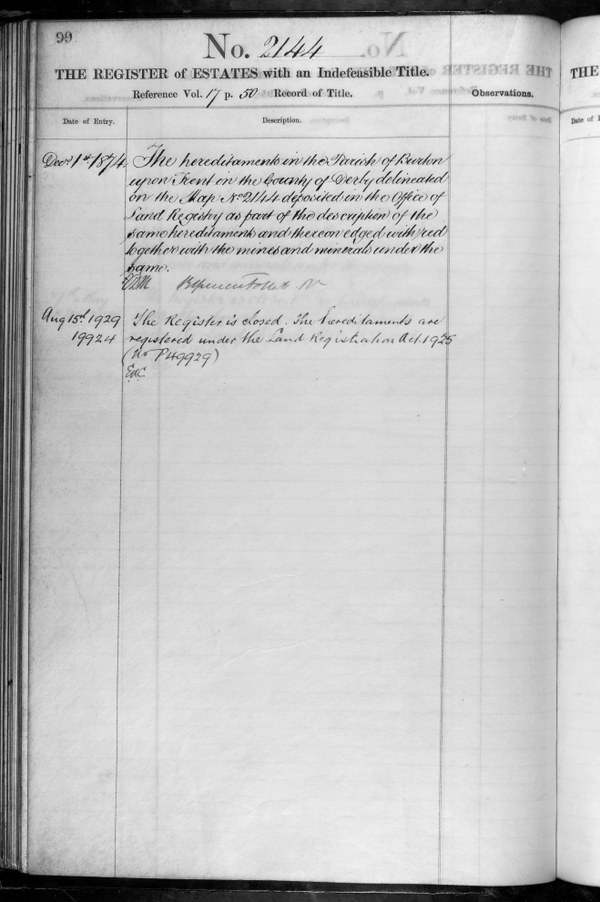 99
No. 2144
THE REGISTER of ESTATES with an Indefeasible Title.
Reference Vol. 17 p. 50 Record of Title.
Observations.
Date of Entry.
Description.
Decr 1st 1874
The hereditaments in the Parish of Burton
upon Trent in the County of Derby delineated
on the Map No 2144 deposited in the Office of
Land Registry as part of the description of the
same hereditaments and thereon edged with red
together with the mines and minerals under the
same.
Aug 15th 1929
19924
The Register is closed. The hereditaments are
registered under the Land Registration Act. 1925
(No P49929)
THE
Date of E